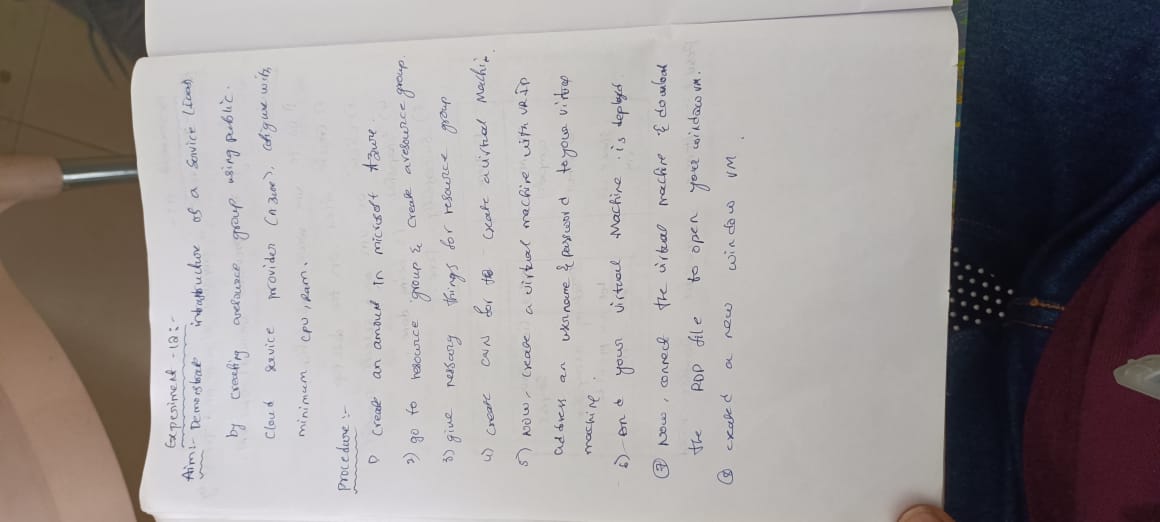 Experiment - 12:-
Aim:- Demonstrate infrastructure as a Service (Iaas)
by creating aresource group using public.
Cloud service provider (Azure), cofigure with
minimum CPU, Ram.
Procedure:-
1) Create an amount in microsoft Azure.
2) go to resource group & Create aresource group.
3) give nessary things for resource group
4) create for the create avirtual Machin.
5) Now, create a virtual machine with VR IP
address an usrname & password to your virtual
machine.
6) your virtual Machine is deployed.
7) Now, connect the virtual machine & download
the RDP file to open your window VM.
8) created a new window VM.